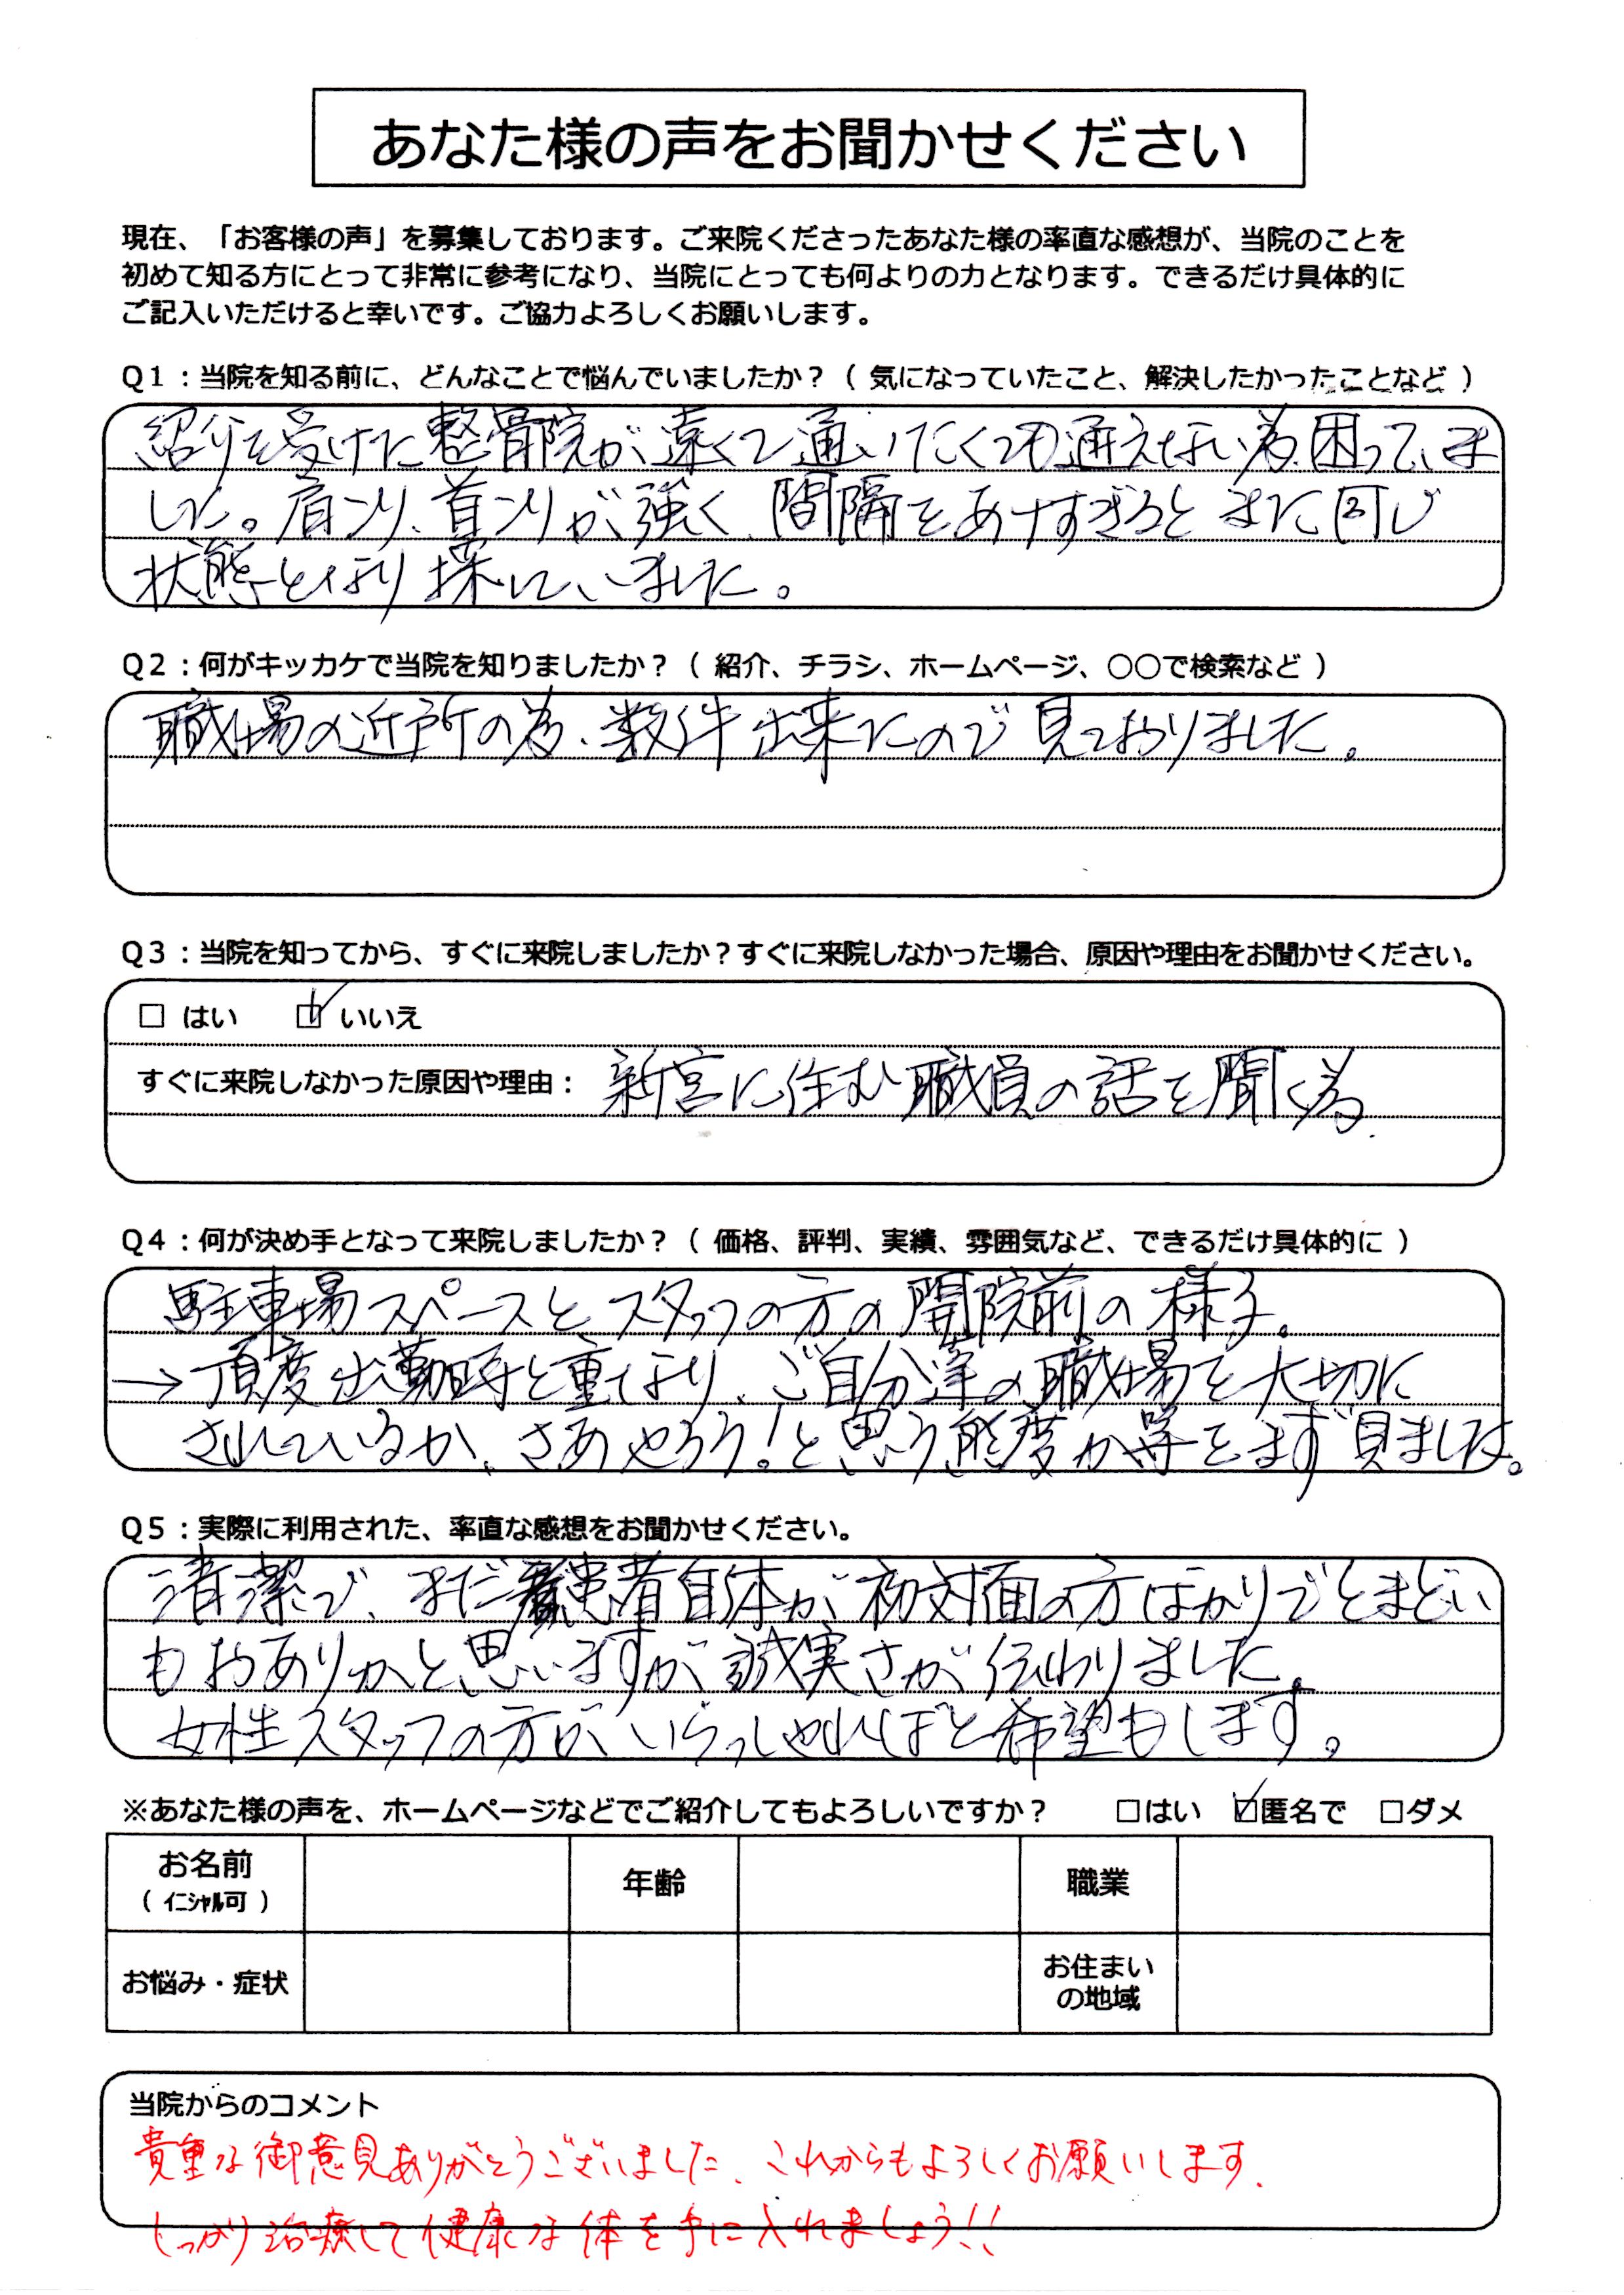 あなた様の声をお聞かせください
現在、「お客様の声」を募集しております。ご来院くださったあなた様の率直な感想が、当院のことを
初めて知る方にとって非常に参考になり、当院にとっても何よりの力となります。できるだけ具体的に
ご記入いただけると幸いです。ご協力よろしくお願いします。
Q1：当院を知る前に、どんなことで悩んでいましたか？（ 気になっていたこと、解決したかったことなど ）
紹介を受けた整骨院が遠くて通いたくても通えない為、困っていま
した。肩コリ、首コリが強く、間隔をあけすぎるとまた同じ
状態となり探していました。
Q2：何がキッカケで当院を知りましたか？（ 紹介、チラシ、ホームページ、○○で検索など ）
職場の近所の為、数件出来たので見ておりました。
Q3：当院を知ってから、すぐに来院しましたか？すぐに来院しなかった場合、原因や理由をお聞かせください。
□ はい ☑ いいえ
すぐに来院しなかった原因や理由： 新宮に住む職員の話を聞く為.
Q4：何が決め手となって来院しましたか？（ 価格、評判、実績、雰囲気など、できるだけ具体的に ）
駐車場スペースとスタッフの方の開院前の様子。
→頂度出勤時と重なり、ご自分達の職場を大切に
されているか、さあやろう！と思う態度か等をまず見ました。
Q5：実際に利用された、率直な感想をお聞かせください。
清潔で、まだ患者自体が初対面の方ばかりでとまどい
もおありかと思いますが誠実さが伝わりました。
女性スタッフの方がいらっしゃればと希望もします。
※あなた様の声を、ホームページなどでご紹介してもよろしいですか？ □はい ☑匿名で □ダメ
お名前 年齢 職業
（ イニシャル可 ）
お悩み・症状 お住まい
の地域
当院からのコメント
貴重な御意見ありがとうございました、これからもよろしくお願いします.
しっかり治療して健康な体を手に入れましょう!!